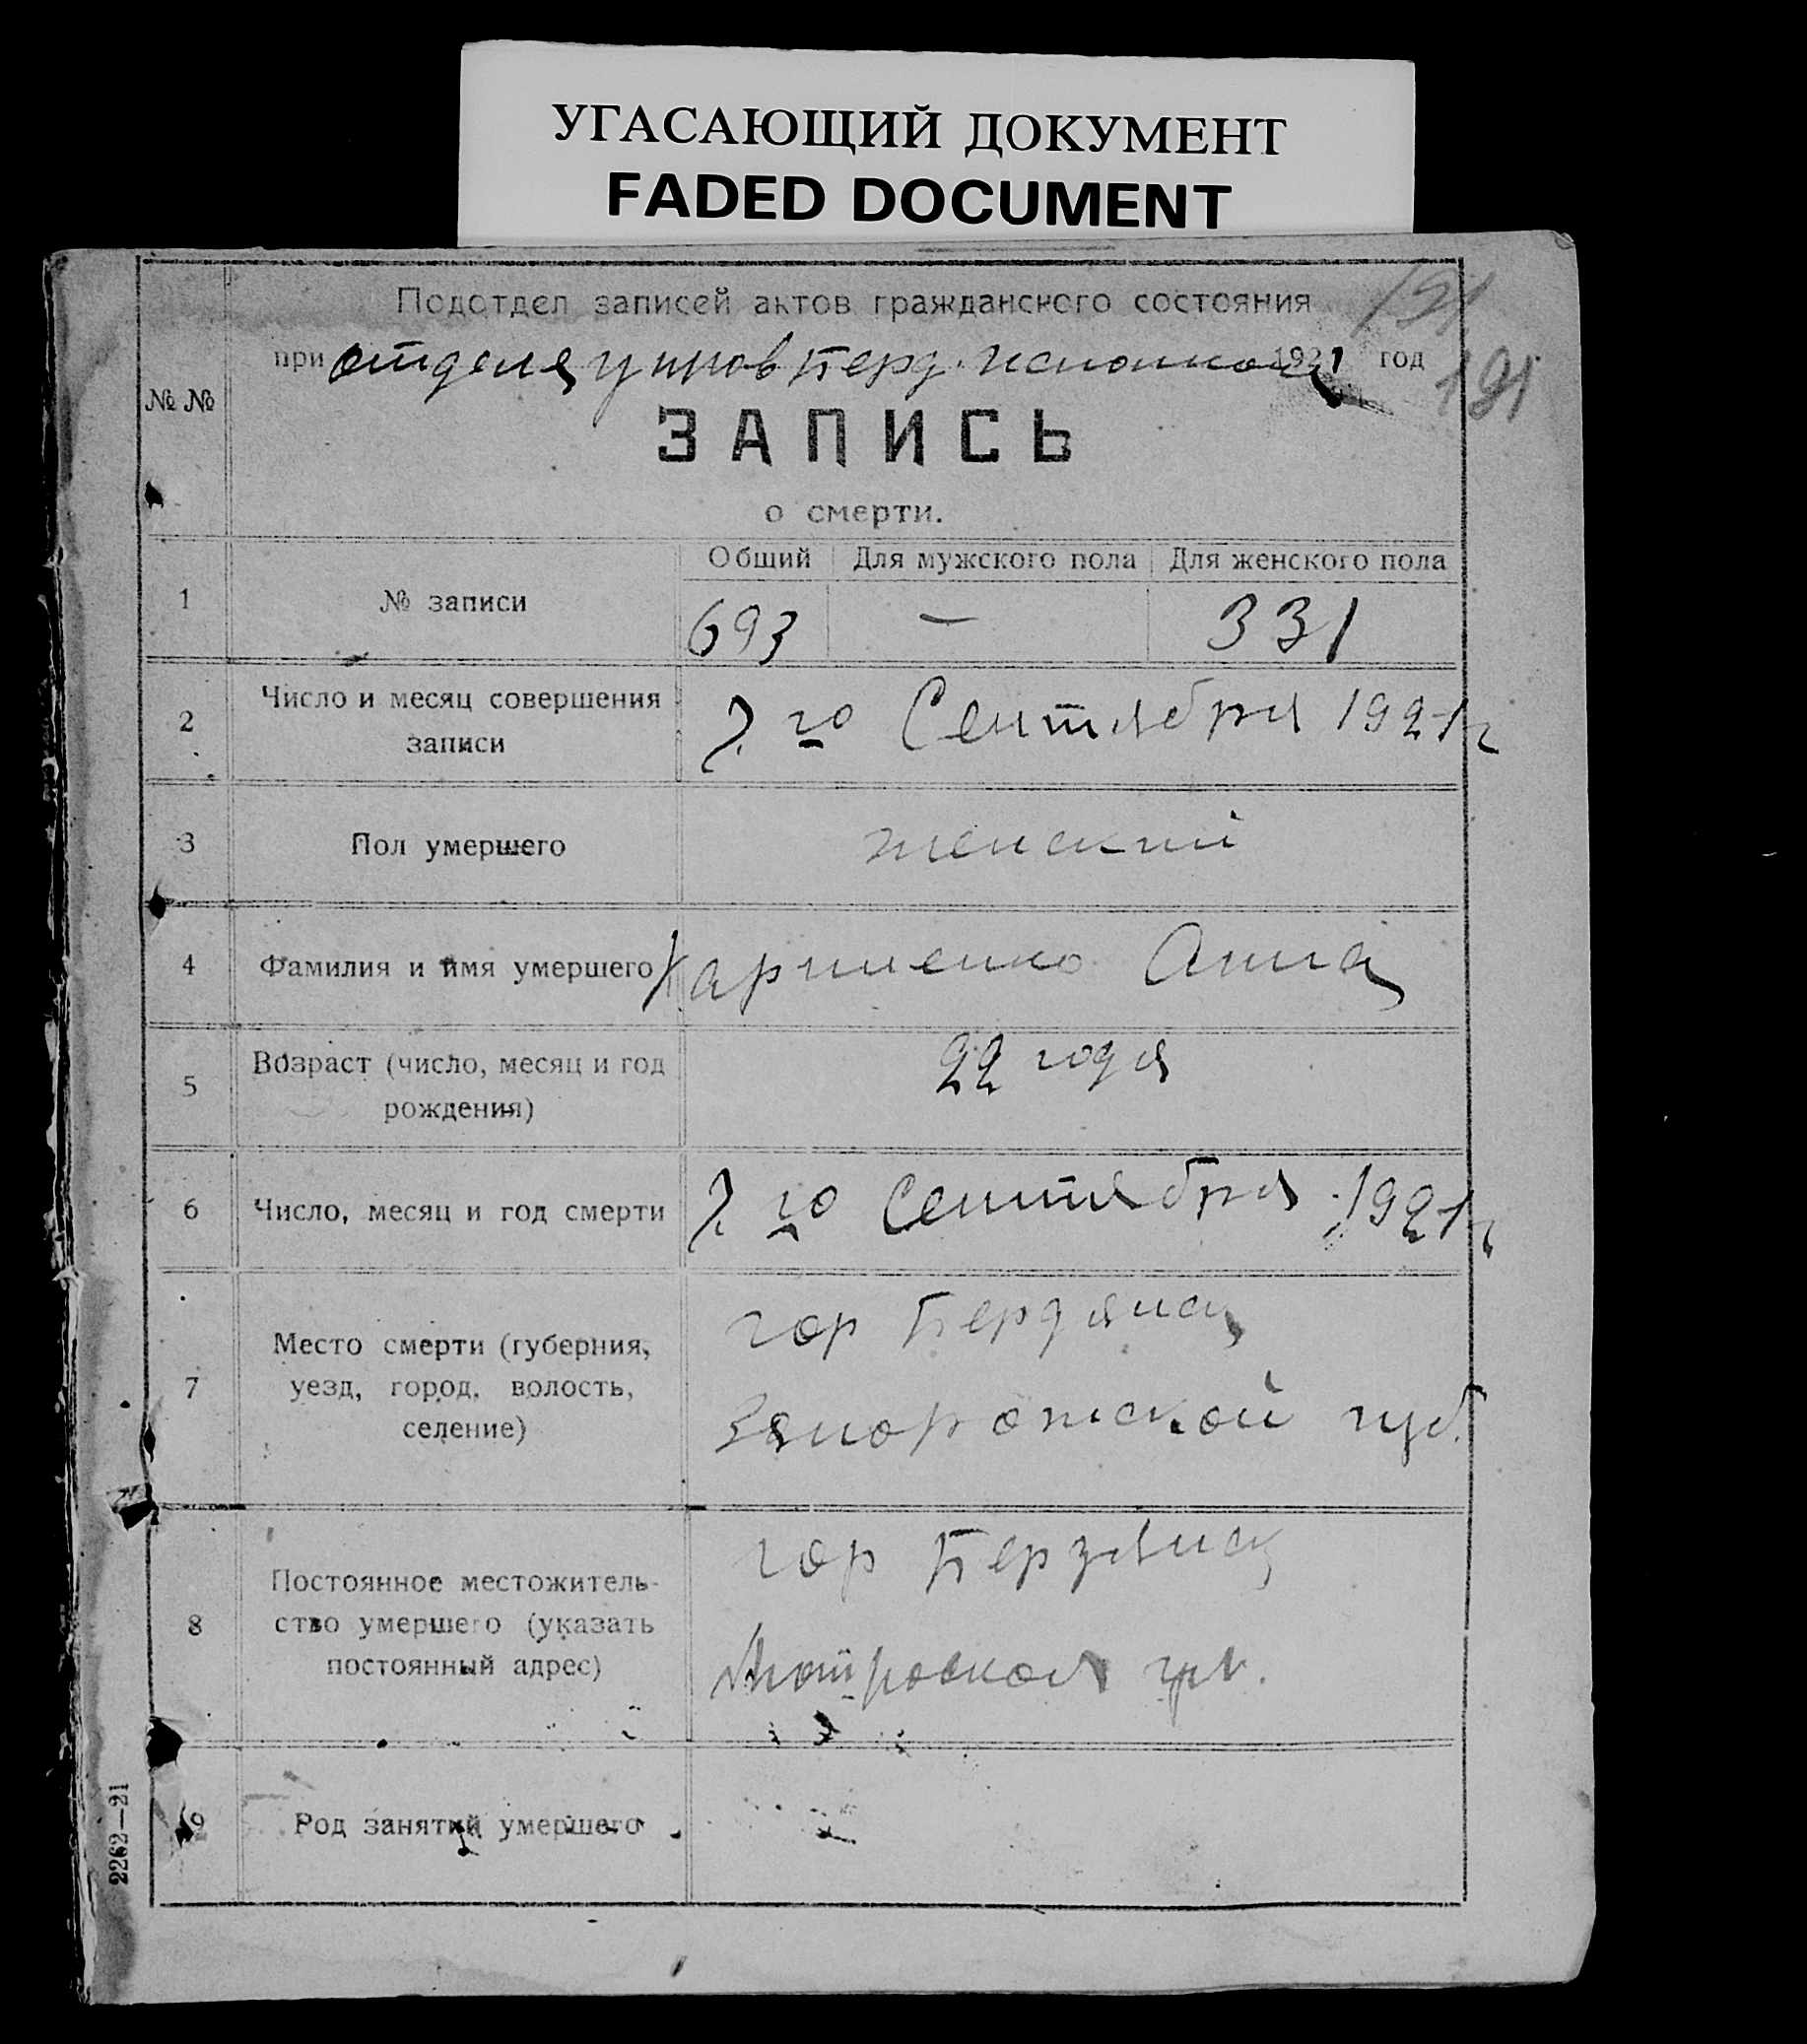 УГАСАЮЩИЙ ДОКУМЕНТ
FADED DOCUMENT
191
Подотдел записей актов гражданского состояния
при отдела управ Берд. 1921 год
191
№ №
ЗАПИСЬ
о смерти.
Общий Для мужского пола Для женского пола
1 № записи 693 — 331
2 Число и месяц совершения
записи
7 го Сентября 1921 г
3 Пол умершего женский
4 Фамилия и имя умершего Карпиенко Анна
5 Возраст (число, месяц и год
рождения)
22 года
6 Число, месяц и год смерти 7 го Сентября 1921 г
7 Место смерти (губерния,
уезд, город, волость,
селение)
гор Бердянск
Запорожской губ.
8 Постоянное местожитель-
ство умершего (указать
постоянный адрес)
гор Бердянск
9 Род занятий умершего
2262—21